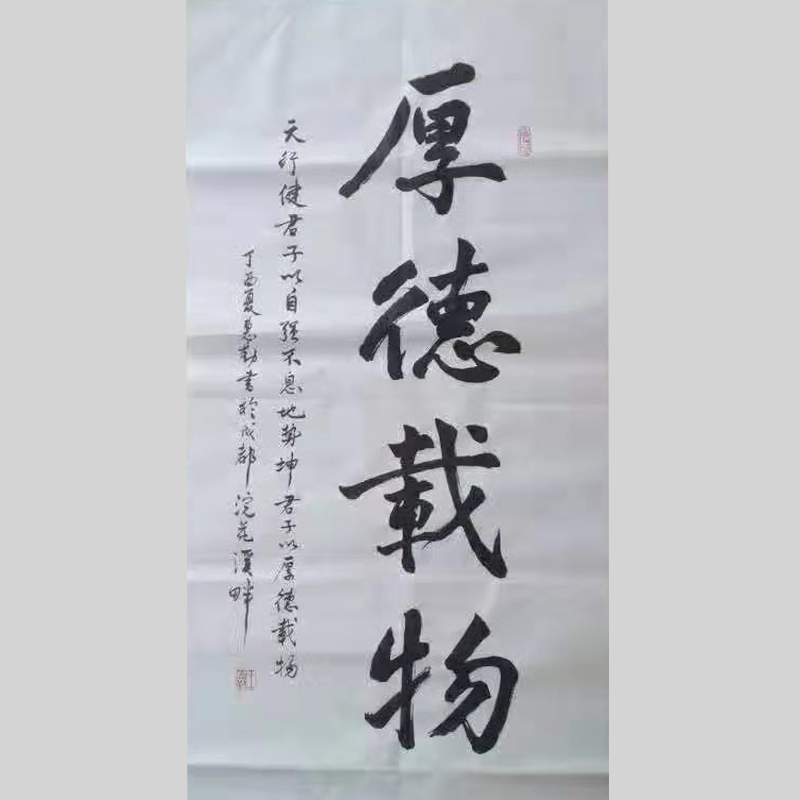 厚德載物
天行健君子以自强不息地势坤君子以厚德载物
丁酉夏惠勤書於成都浣花溪畔